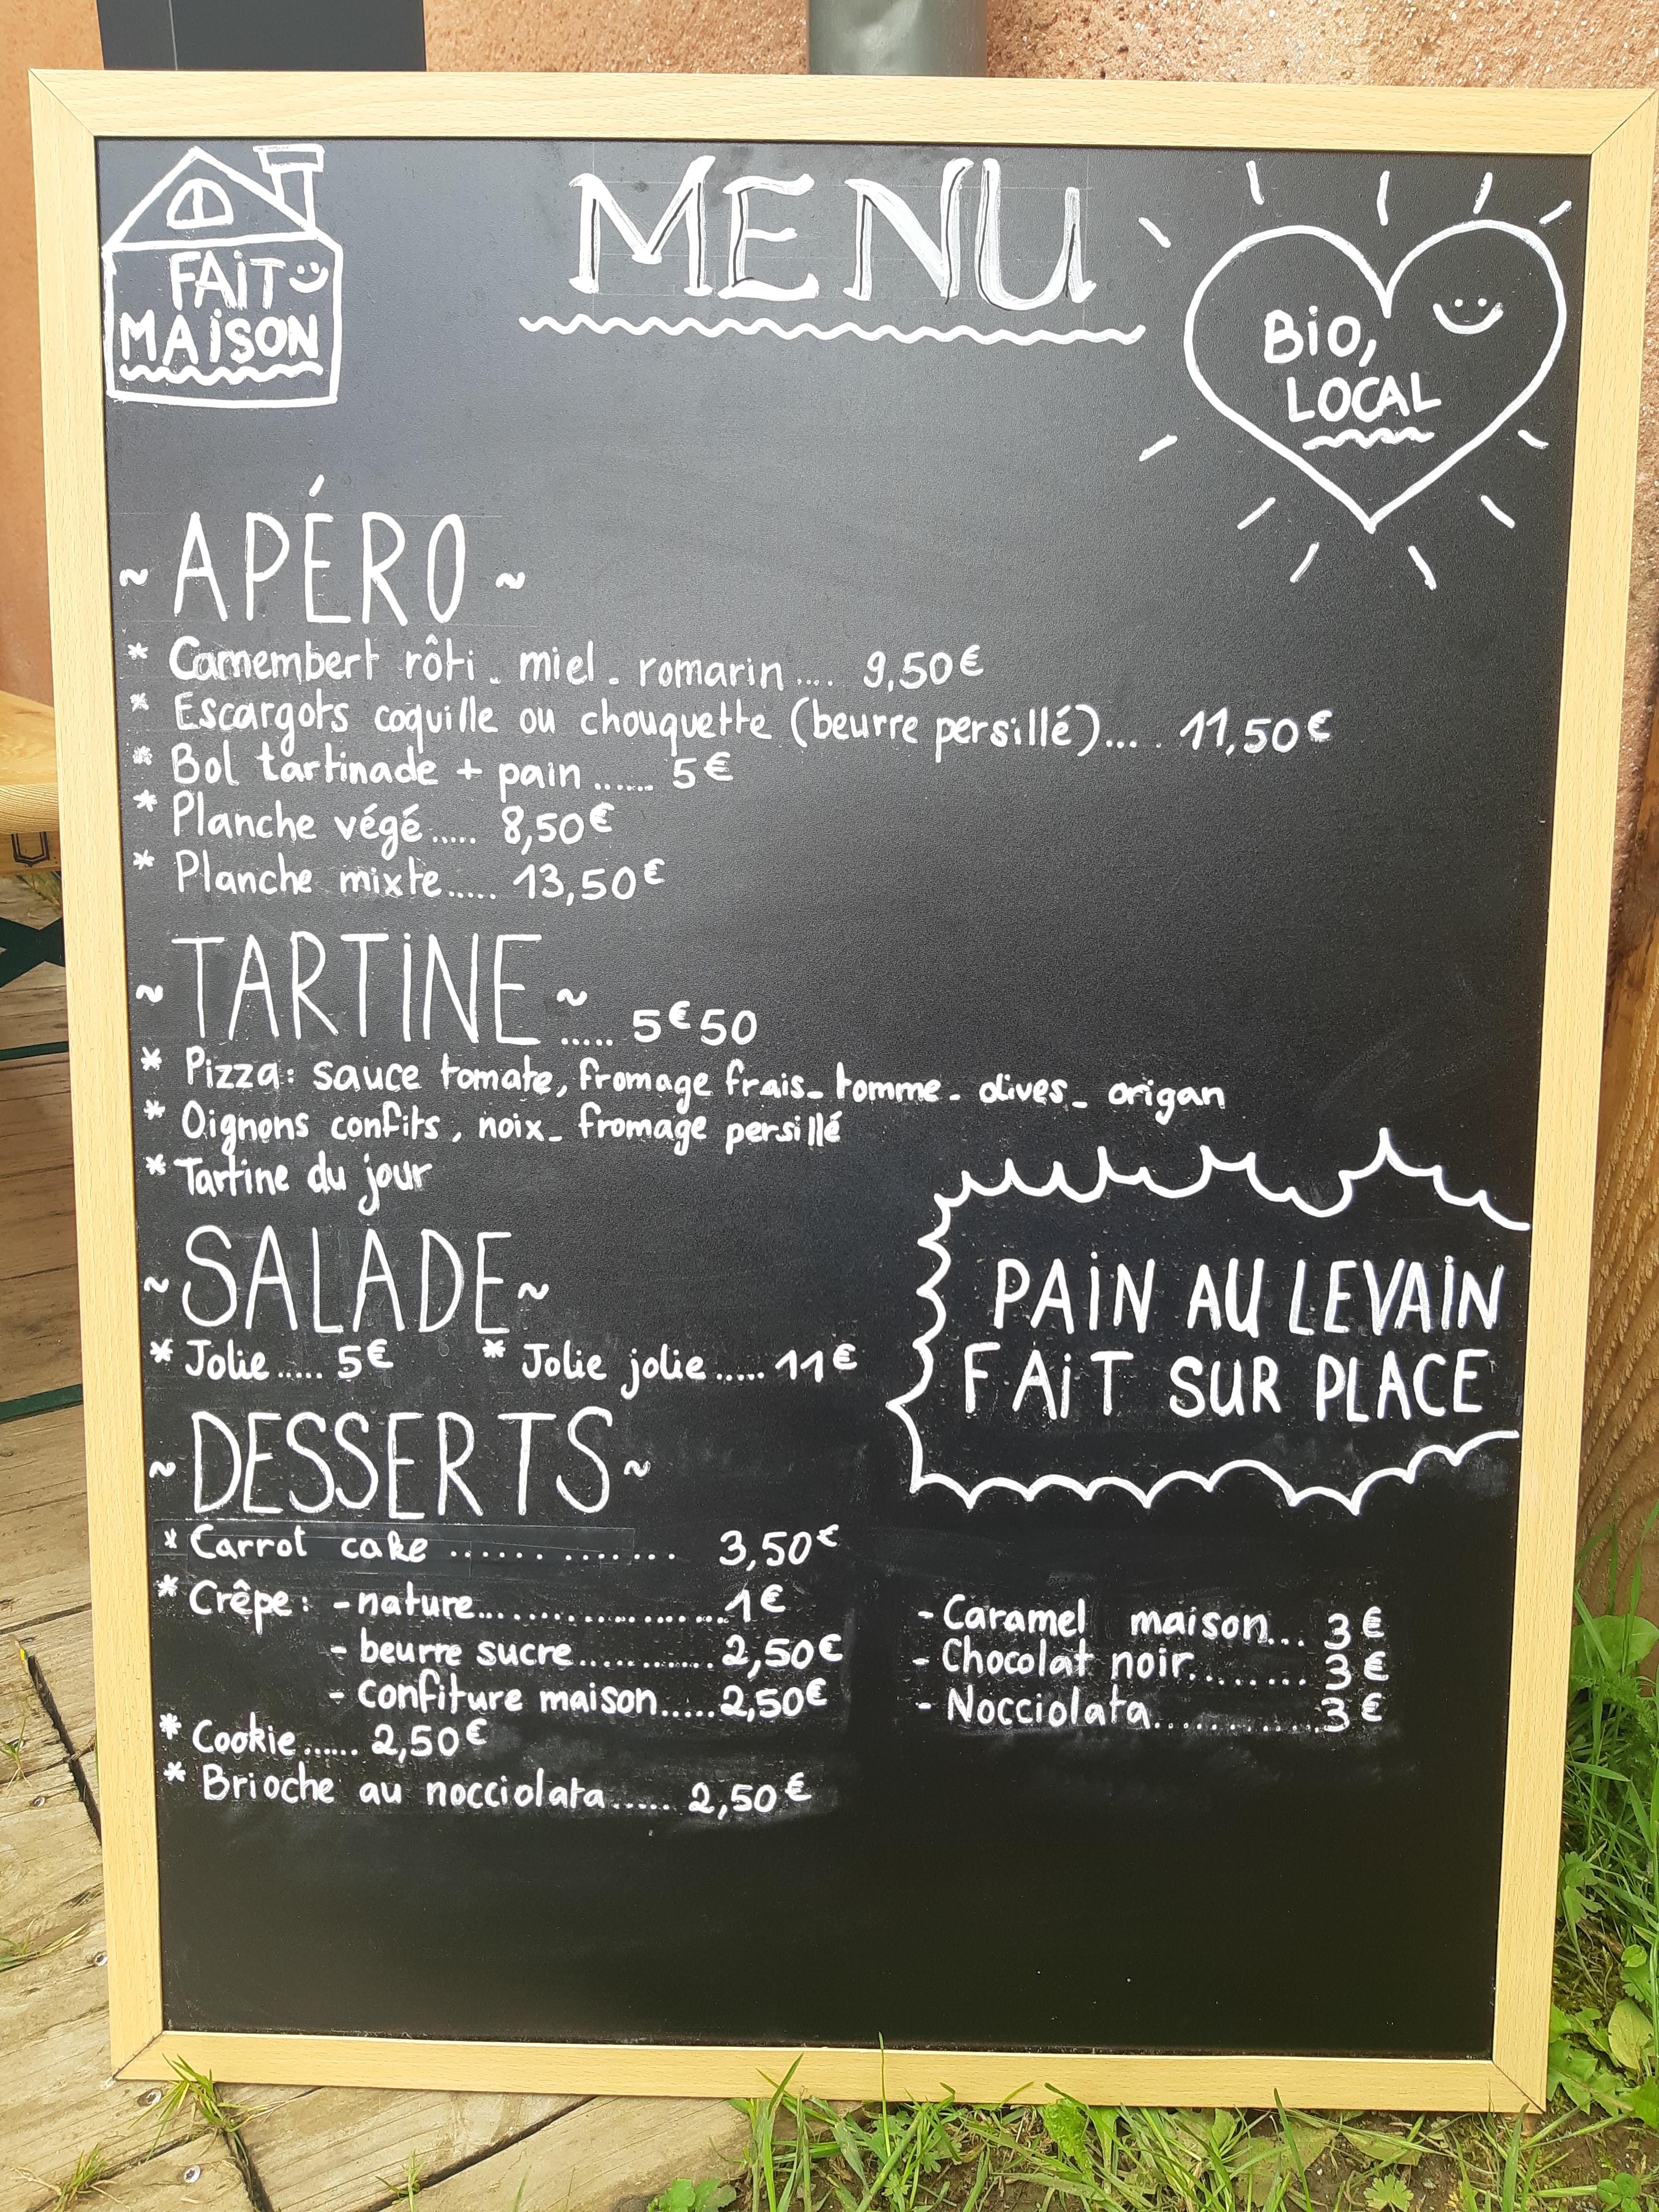 FAiT
MAiSON
MENU
Bio,
LOCAL
~ APÉRO ~
* Camembert rôti - miel - romarin .... 9,50€
* Escargots coquille ou chouquette (beurre persillé).... 11,50€
* Bol tartinade + pain ....... 5€
* Planche végé..... 8,50€
* Planche mixte...... 13,50€
~ TARTiNE ~ ..... 5€50
* Pizza: sauce tomate, fromage frais - tomme - olives - origan
* Oignons confits, noix - fromage persillé
* Tartine du jour
~ SALADE ~
* Jolie ..... 5€ * Jolie jolie ..... 11€
PAiN AU LEVAiN
FAiT SUR PLACE
~ DESSERTS ~
* Carrot cake ............. 3,50€
* Crêpe: - nature..................... 1€
- beurre sucre ............ 2,50€
- confiture maison..... 2,50€
- Caramel maison... 3€
- Chocolat noir........ 3€
- Nocciolata............ 3€
* Cookie ...... 2,50€
* Brioche au nocciolata...... 2,50€